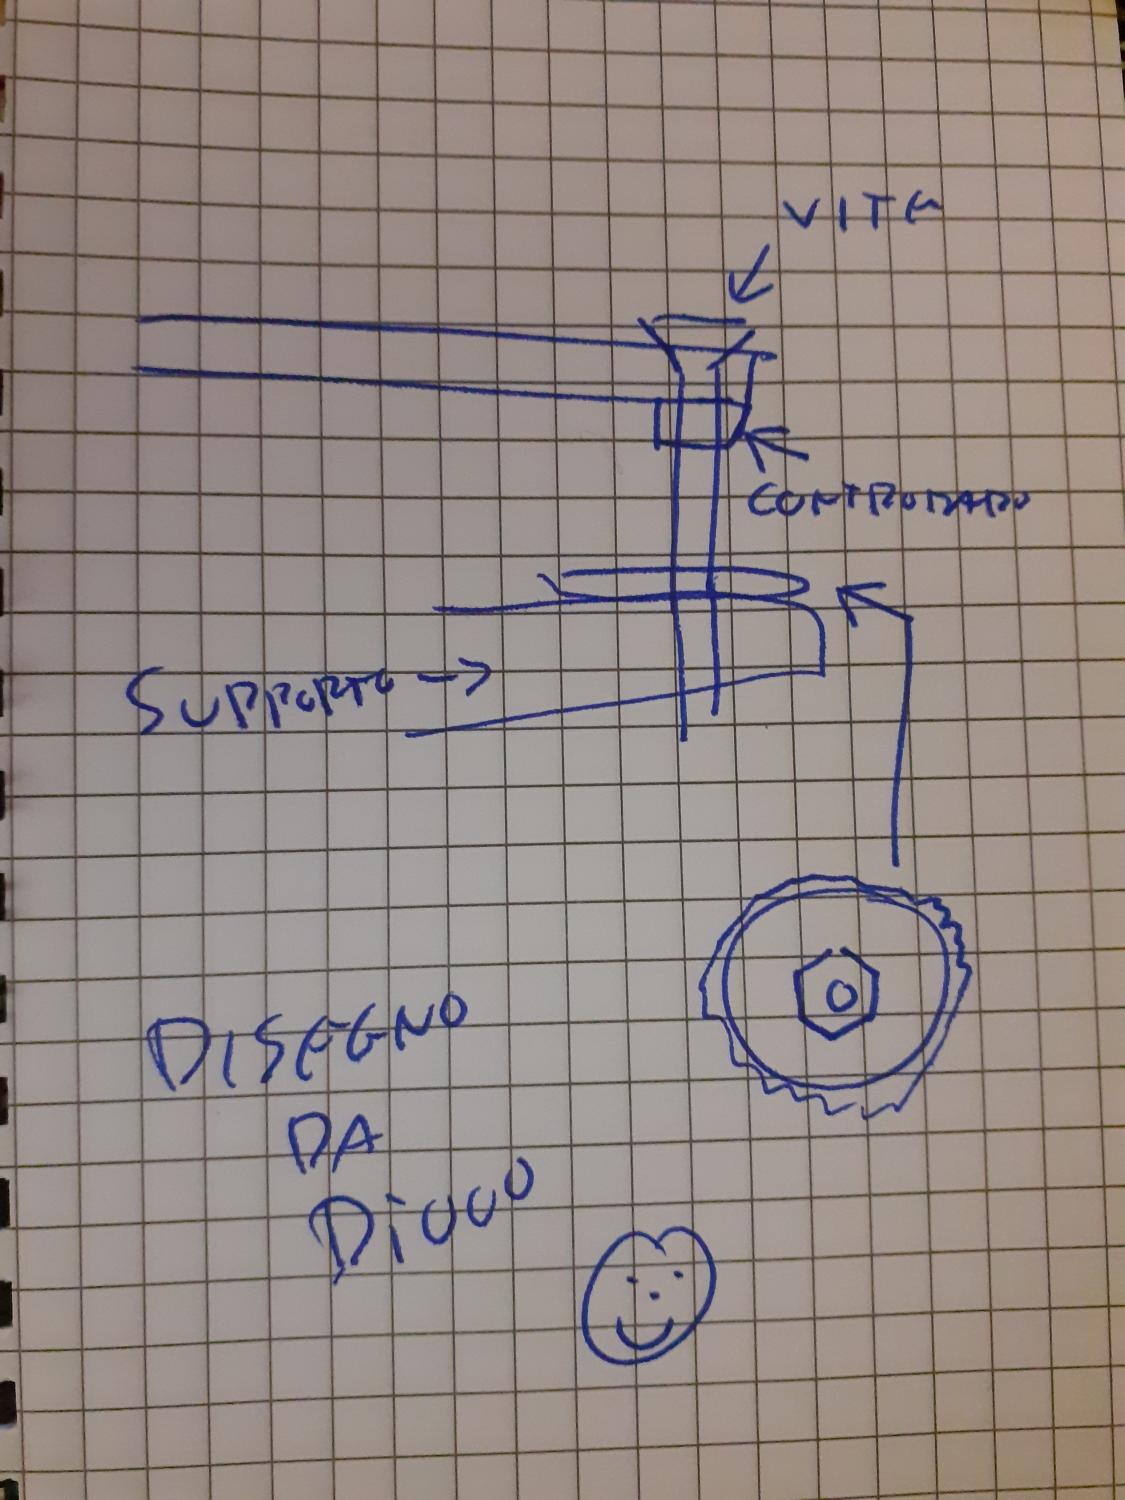 VITE
CONTRODADO
SUPPORTO
DISEGNO
DA